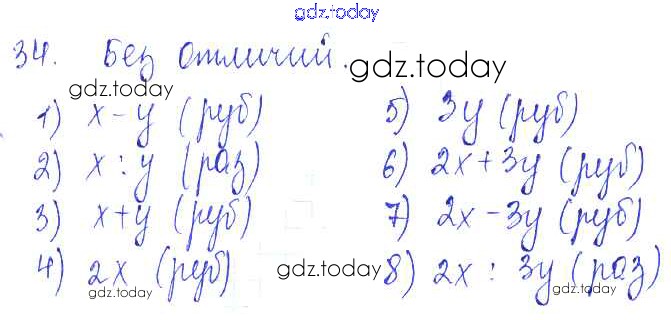 gdz.today
34. Без отличий.
gdz.today
gdz.today
1) x - y (руб)
2) x : y (раз)
3) x + y (руб)
4) 2x (руб)
gdz.today
5) 3y (руб)
6) 2x + 3y (руб)
7) 2x - 3y (руб)
8) 2x : 3y (раз)
gdz.today
gdz.today